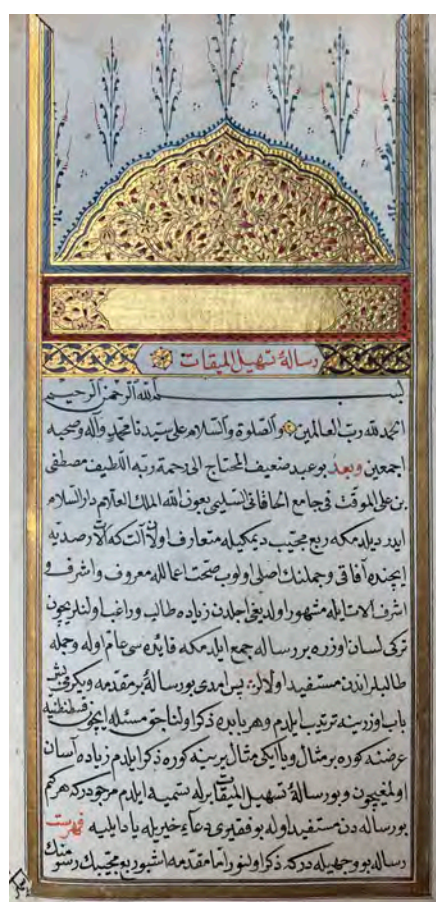 رسالۀ تسهيل الميقات
بسم الله الرحمن الرحيم
الحمد لله رب العالمين والصلوة والسلام على سيدنا محمد وآله وصحبه
اجمعين وبعد بو عبد ضعيف المحتاج الى رحمة ربه اللطيف مصطفى
بن على الموقت فى جامع الخاقانى السليمى بعون الله الملك العلام دار السلام
ايدر ديلدمكه ربع مجيّب ديمكيله متعارف اولان آلت كه آلات رصديه
ايچنده آفاقى وجمله‌نك اصلى اولوب صحت اعمال له معروف واشرف و
اشرف آلات ايله مشهور اولديغى اجلدن زياده طالب وراغب اولنلريچون
تركى لسان اوزره بر رساله جمع ايلدمكه فائده‌سى عام اوله وجمله
طالبلر اندن مستفيد اولالر پس امدى بو رسالۀ بر مقدمه ويكرمى بش
باب اوزرينه ترتيب ايلدم وهر بابده ذكر اولناجق مسئله ايچون قسطنطنيه
عرضنه كوره بر مثال ويا ايكى مثال يرينه كوره ذكر ايلدم زياده آسان
اولمغيچون وبو رسالۀ تسهيل الميقات برله تسميه ايلدم مرجودركه هركم
بو رساله‌دن مستفيد اوله بو فقيرى دعاء خيريله ياد ايليه فهرست
رساله بو وجهيله دركه ذكر اولنور اما مقدمه اشبو ربع مجيبك رسومنك